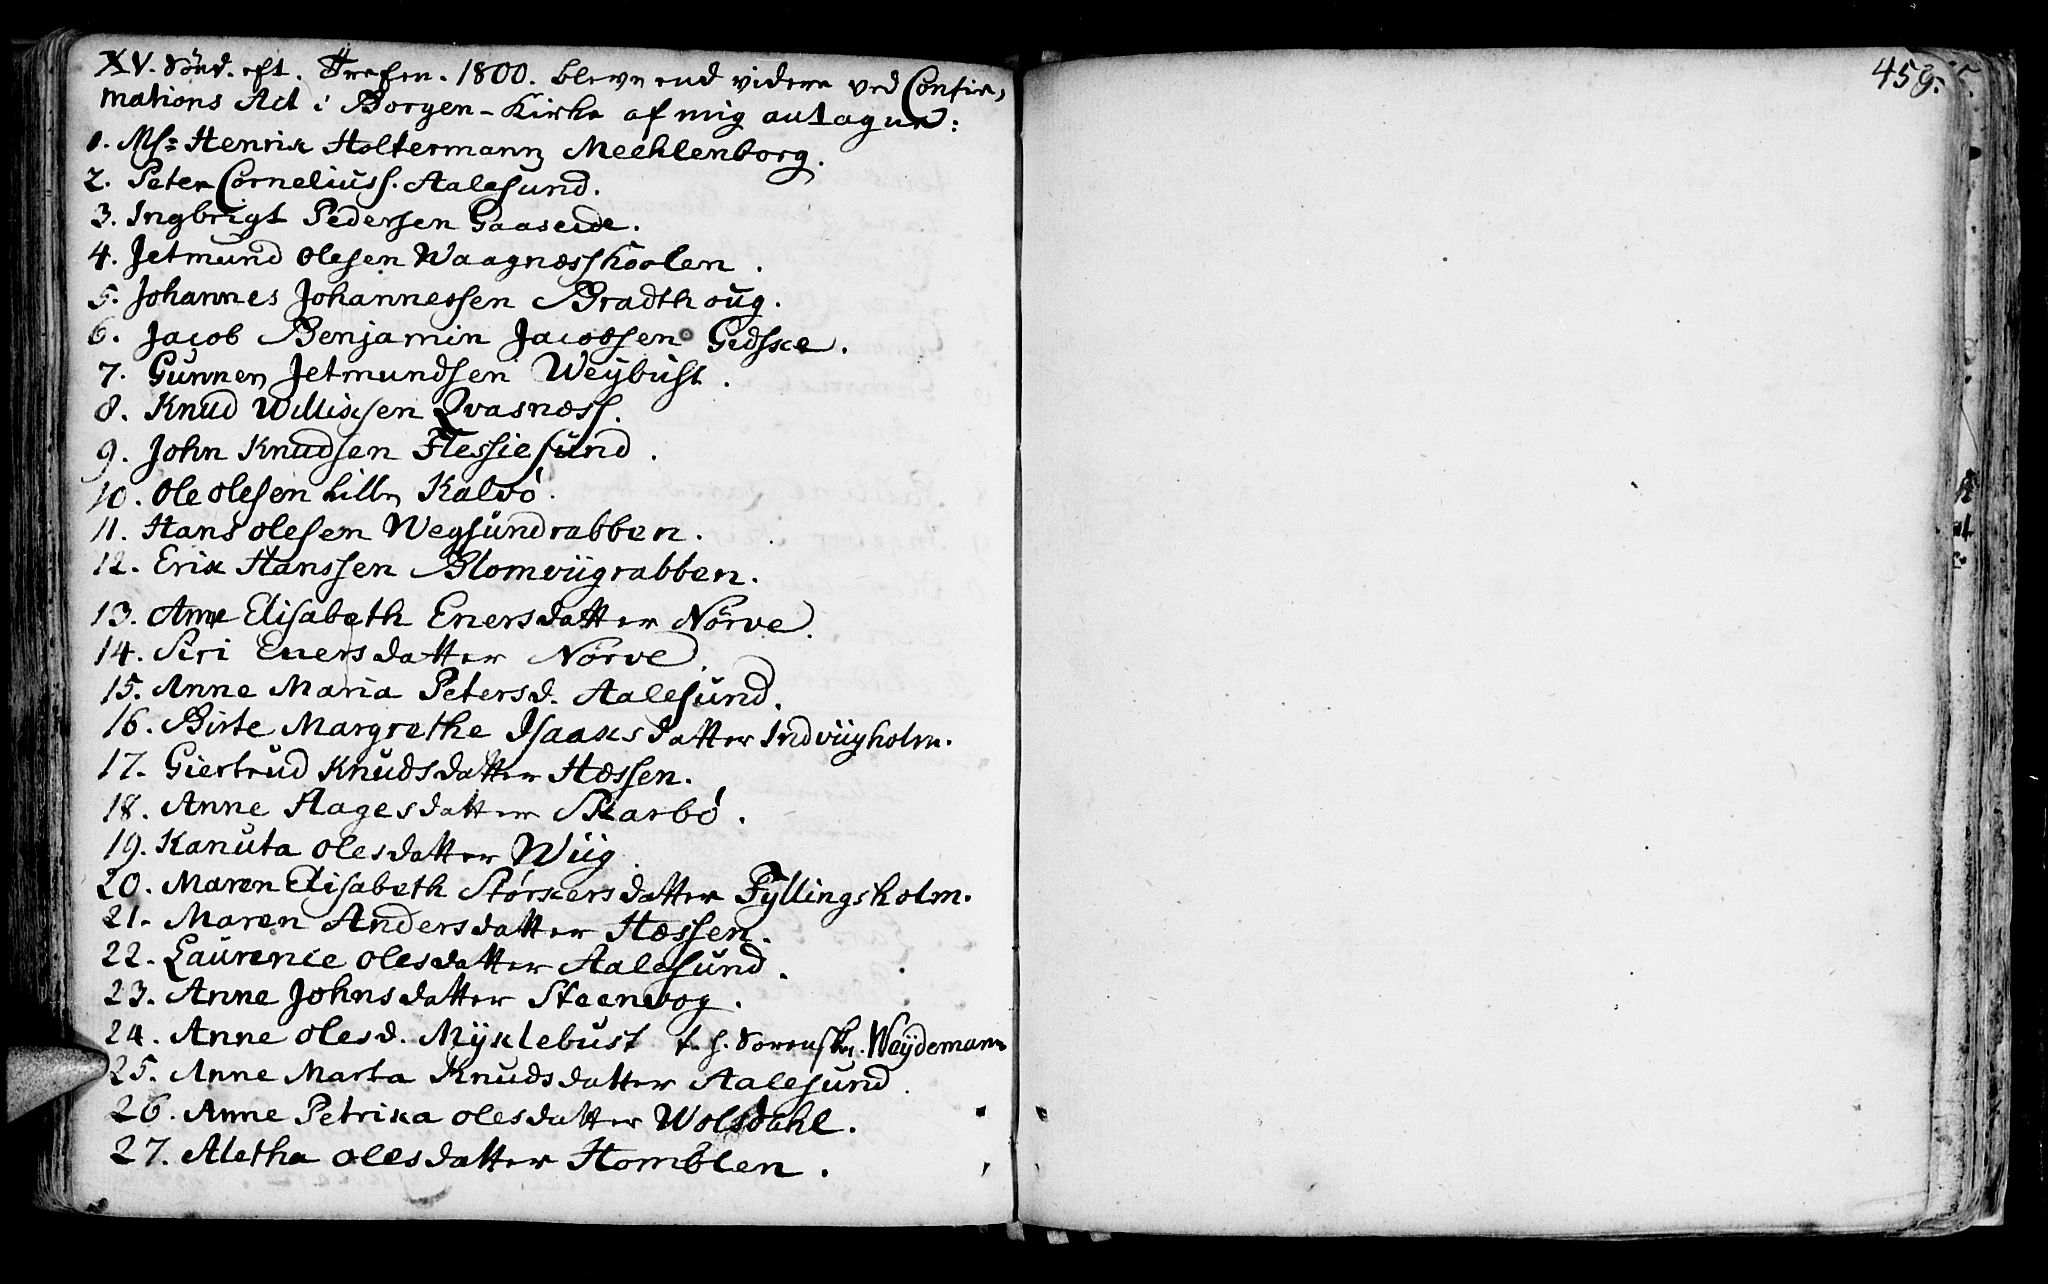 XV. Sönd. eft. Trefen. 1800. bleve end videre ved Confir,
mations Act i Borgen-Kirke af mig antagne:
1. Ms: Henrik Holtermann Mechlenborg.
2. Peter Corneliuss. Aalesund.
3. Ingbrigt Pedersen Gaaseide.
4. Jetmund Olesen Waagnæsshoolen.
5. Johannes Johannessen Bradthoug.
6. Jacob Benjamin Jacobsen Gidske.
7. Gunner Jetmundsen Weybust.
8. Knud Willixsen Qvasnæss.
9. John Knudsen Flessiesund.
10. Ole Olesen Lille Kalvö.
11. Hans Olesen Wegsundrabben.
12. Erik Hanssen Blomviigrabben.
13. Anne Elisabeth Enersdatter Nörve.
14. Siri Enersdatter Nörve.
15. Anne Maria Petersd. Aalesund.
16. Birte Margrethe Isaaksdatter Indviigholm.
17. Giertrud Knudsdatter Hæssen.
18. Anne Aagesdatter Skarbö.
19. Kanuta Olesdatter Wiig.
20. Maren Elisabeth Störkersdatter Fyllingsholm.
21. Maren Andersdatter Hæssen.
22. Laurence Olesdatter Aalesund.
23. Anne Johnsdatter Steenvog.
24. Anne Olesd. Myklebust t. h. Sorenskr. Weydemann
25. Anne Marta Knudsdatter Aalesund.
26. Anne Petrika Olesdatter Wolsdahl.
27. Aletha Olesdatter Homblen.
459.